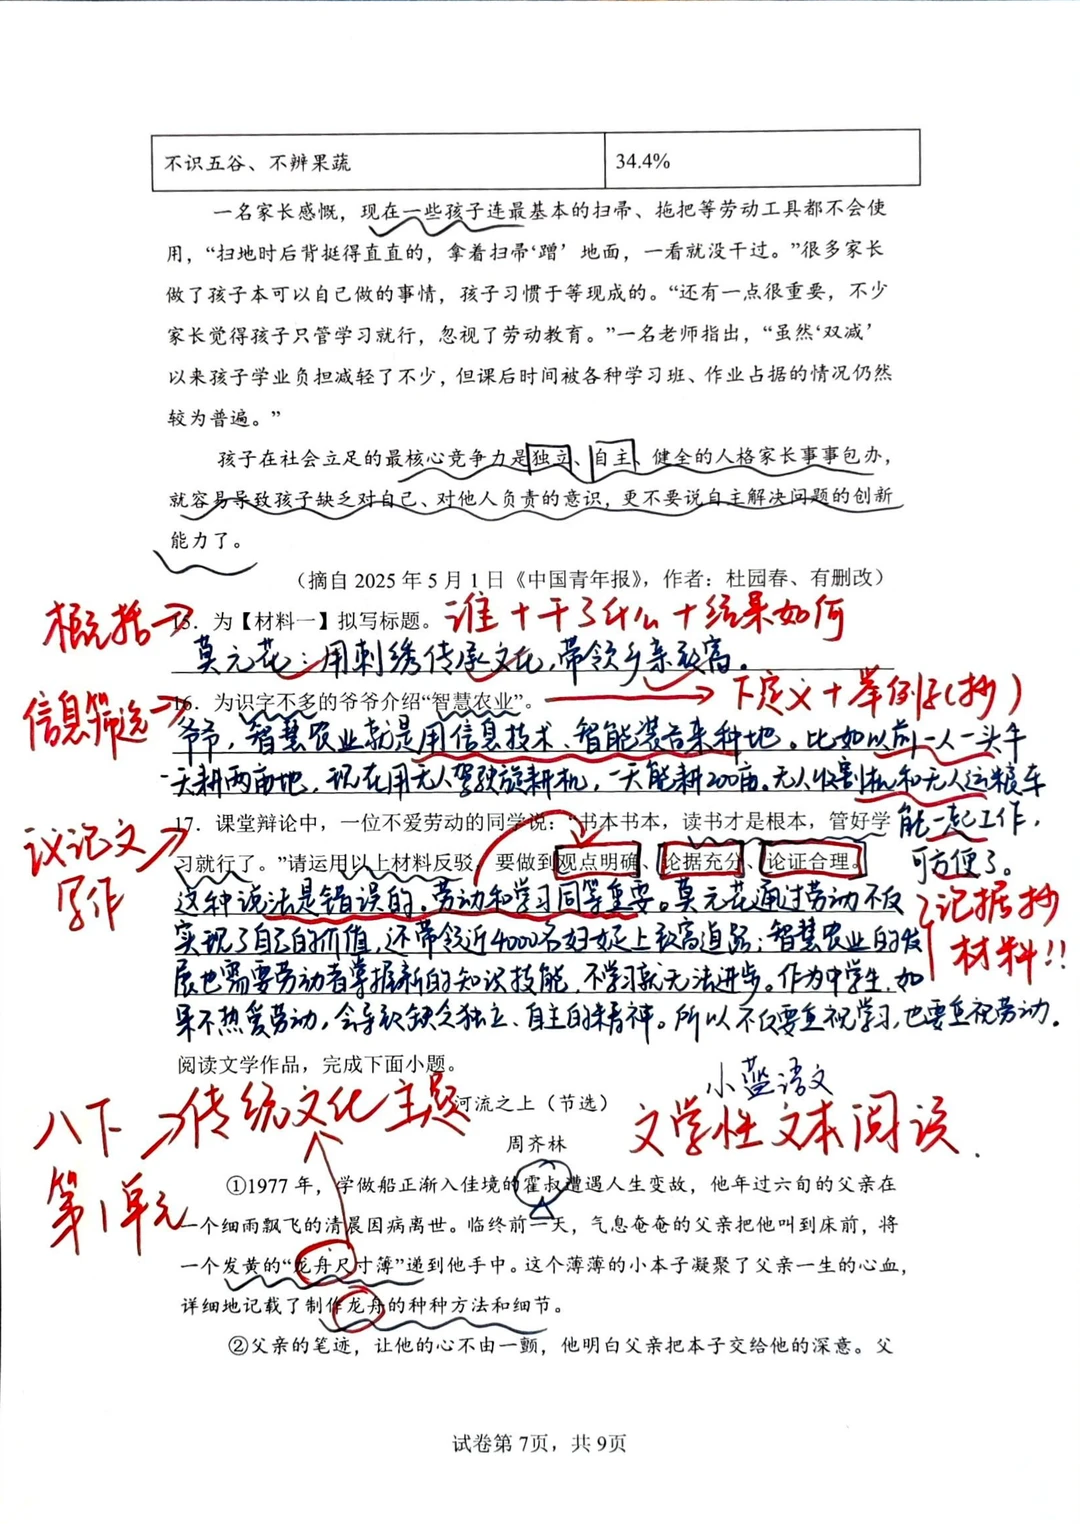 不识五谷、不辨果蔬 34.4%
一名家长感慨，现在一些孩子连最基本的扫帚、拖把等劳动工具都不会使
用，“扫地时后背挺得直直的，拿着扫帚‘蹭’地面，一看就没干过。”很多家长
做了孩子本可以自己做的事情，孩子习惯于等现成的。“还有一点很重要，不少
家长觉得孩子只管学习就行，忽视了劳动教育。”一名老师指出，“虽然‘双减’
以来孩子学业负担减轻了不少，但课后时间被各种学习班、作业占据的情况仍然
较为普遍。”
孩子在社会立足的最核心竞争力是独立、自主、健全的人格家长事事包办，
就容易导致孩子缺乏对自己、对他人负责的意识，更不要说自主解决问题的创新
能力了。
（摘自 2025 年 5 月 1 日《中国青年报》，作者：杜园春、有删改）
概括 15．为【材料一】拟写标题。 谁+干了什么+结果如何
莫元花：用刺绣传承文化，带领乡亲致富。
信息筛选 16．为识字不多的爷爷介绍“智慧农业”。 下定义+举例子(抄)
爷爷，智慧农业就是用信息技术、智能装备来种地。比如以前一人一头牛
一天耕两亩地，现在用无人驾驶旋耕机，一天能耕200亩。无人收割机和无人运粮车
能一起工作，
可方便了。
议论文
写作
17．课堂辩论中，一位不爱劳动的同学说：“书本书本，读书才是根本，管好学
习就行了。”请运用以上材料反驳，要做到观点明确、论据充分、论证合理。
这种说法是错误的。劳动和学习同等重要。莫元花通过劳动不仅
实现了自己的价值，还带领近4000名妇女走上致富道路；智慧农业的发
展也需要劳动者掌握新的知识技能，不学习就无法进步。作为中学生，如
果不热爱劳动，会导致缺乏独立、自主的精神。所以不仅要重视学习，也要重视劳动。
论据抄
材料!!
阅读文学作品，完成下面小题。
小蓝语文
八下 传统文化主题
第1单元
河流之上（节选）
文学性文本阅读.
周齐林
①1977 年，学做船正渐入佳境的霍叔遭遇人生变故，他年过六旬的父亲在
一个细雨飘飞的清晨因病离世。临终前一天，气息奄奄的父亲把他叫到床前，将
一个发黄的“龙舟尺寸簿”递到他手中。这个薄薄的小本子凝聚了父亲一生的心血，
详细地记载了制作龙舟的种种方法和细节。
②父亲的笔迹，让他的心不由一颤，他明白父亲把本子交给他的深意。父
试卷第 7页，共 9页